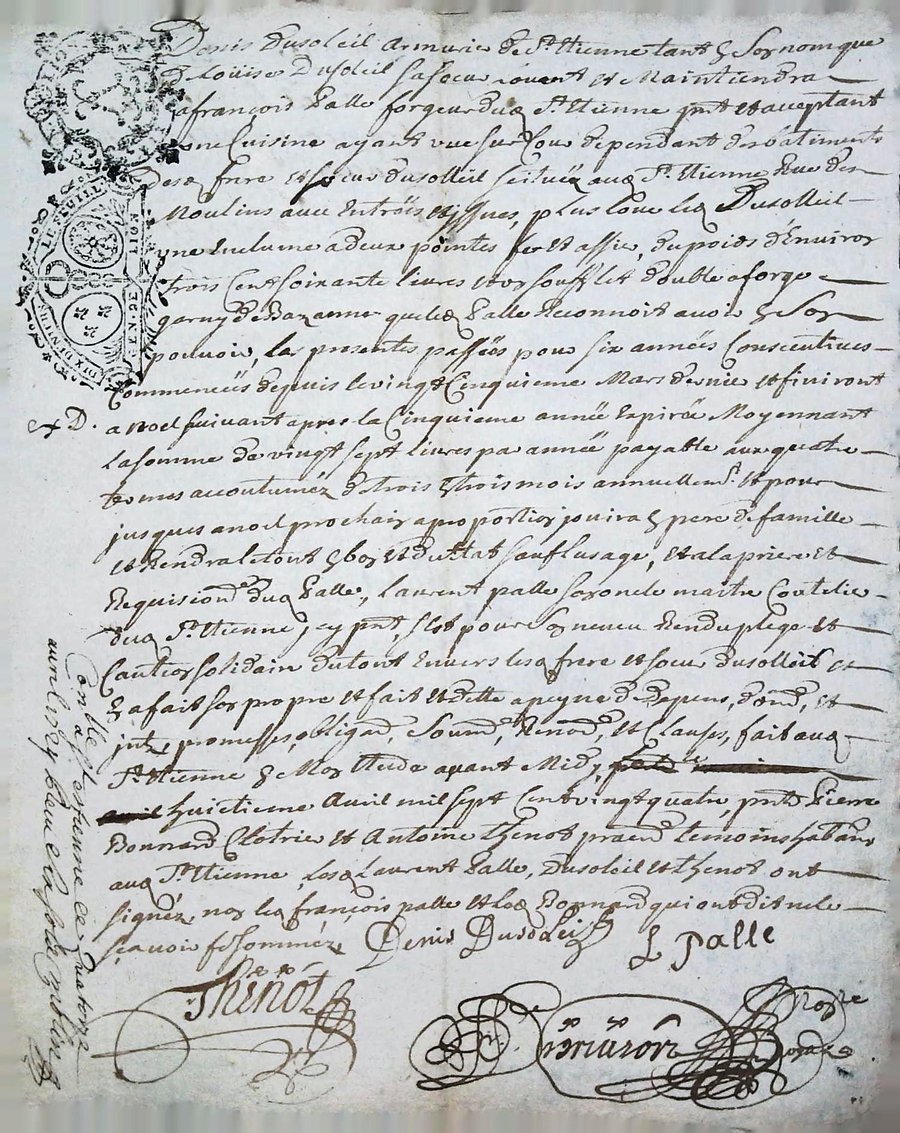 Denis Dusoleil Armurie de St. Etienne tant en son nom que
de Louise Dusoleil sa soeur Louent et Maintiendra
a françois Palle forgeur dud St. Etienne pnt et acceptant
une Cuisine ayant vue sur Cour dependant des batiments
desd frere et soeur dusolleil scituée aud St. Etienne Rue des
Moulins aux Entrées et issues, plus loue led Dusolleil
une Enclume a deux pointes fer et assie, du poids d'Environ
trois Cent soixante livres et un soufflet double a forge
garny de Bazanne que led Palle Reconnoit avoir en son
pouvoir, les presentes passées pour six années Consecutives
Commencées depuis le vingt Cinquieme Mars dernier et finiront
a noel suivant apres la Cinquieme année Expirée Moyennant
la somme de vingt sept livres par année payable aux quatre
termes accoutumés de trois en trois mois annuellemt. et pour
jusques a noel prochain a proportion jouira en pere de famille
et Rendra le tout en bon et du Etat sauf l'usage, et a la priere et
Requisition dud Palle, Laurent palle son oncle maitre Coutelier
dud St. Etienne, cy pnt, s'est pour son neveu Rendu plege et
Caution solidaire du tout Envers lesd frere et soeur dusolleil et
En a fait son propre et fait et dette a peyne de Depens, dom., et
jntz, promesses, obligaõns, Soumons, Renonõns, et Clauses, fait aud
St. Etienne En Mon Etude avant Midy, le
huictieme Avril mil sept Cent vingt quatre, pnts Pierre
Bonnard Clotrier et Antoine Thenot praticn temoins habitans
aud St. Etienne, lesd Laurent Palle, Dusoleil et Thenot ont
signéz, non led françois palle et led Bonnard qui ont dit ne le
sçavoir
Denis Dusoleil
L palle
Thenot
Conllé a St estienne ce quatorze
avril 1724
LE FEUILLE
GEN DE LION
DIX DENIERS